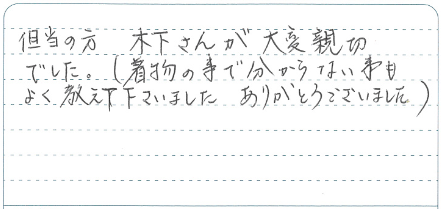 担当の方 木下さんが大変親切
でした。(着物の事で分からない事も
よく教えて下さいました ありがとうございました)